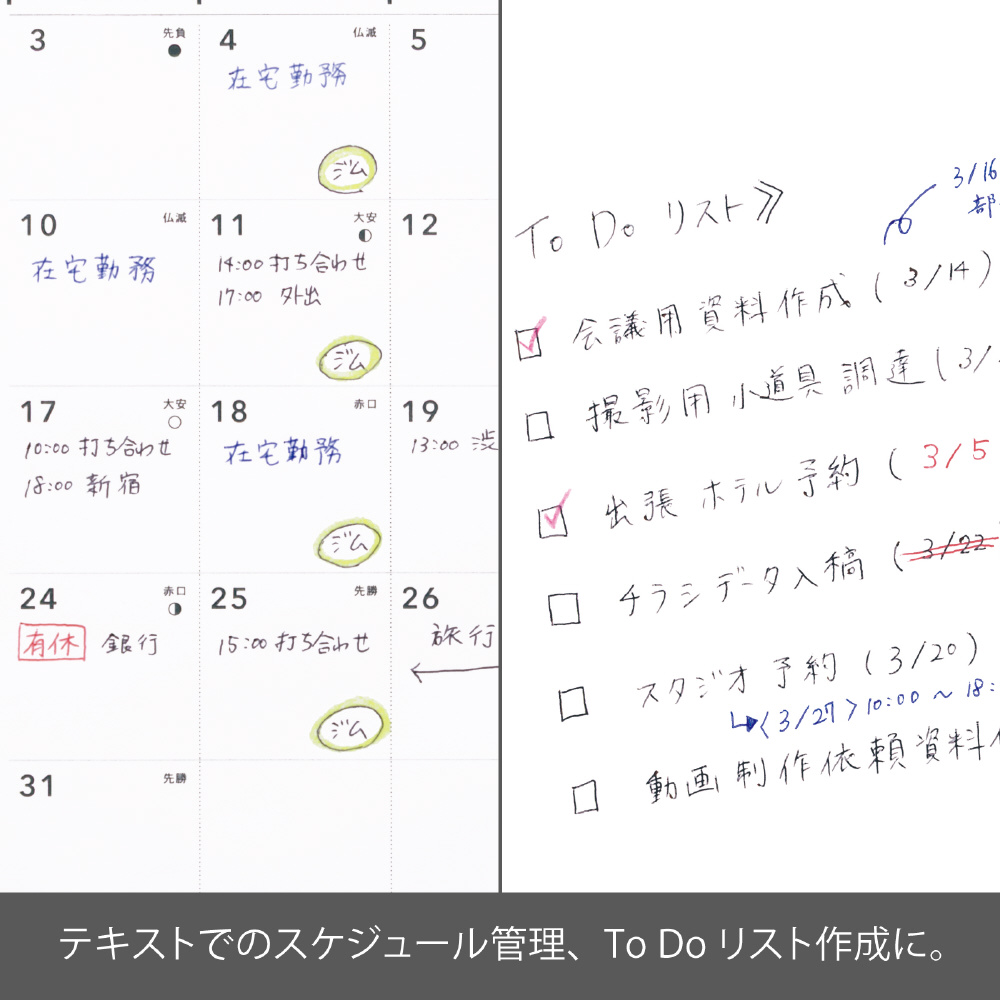 3 先負
4 仏滅
5
在宅勤務
ジム
10 仏滅
11 大安
12
在宅勤務
14:00 打ち合わせ
17:00 外出
ジム
17 大安
18 赤口
19
10:00 打ち合わせ
18:00 新宿
在宅勤務
13:00 渋
ジム
24 赤口
25 先勝
26
有休 銀行
15:00 打ち合わせ
旅行
ジム
31 先勝
3/16
部
To Do リスト》
会議用資料作成 (3/14)
撮影用小道具調達 (3/
出張ホテル予約 (3/5
チラシデータ入稿 (3/22
スタジオ予約 (3/20)
↳〈3/27〉10:00 ~ 18:
動画制作依頼資料作
テキストでのスケジュール管理、To Do リスト作成に。